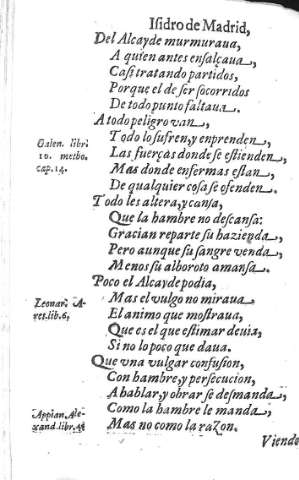 Isidro de Madrid,
Del Alcayde murmuraua,
A quien antes ensalçaua,
Casi tratando partidos,
Porque el de ser socorridos
De todo punto faltaua.
A todo peligro van,
Todo lo sufren, y enprenden,
Galen. libr.
10. metho.
cap. 14.
Las fuerças donde se estienden,
Mas donde enfermas estan,
De qualquier cosa se ofenden.
Todo les altera, y cansa,
Que la hambre no descansa:
Gracian reparte su hazienda,
Pero aunque su sangre venda,
Menos su alboroto amansa.
Poco el Alcayde podia,
Leonar. A-
ret. lib. 6,
Mas el vulgo no miraua,
El animo que mostraua,
Que es el que estimar deuia,
Si no lo poco que daua.
Que vna vulgar confusion,
Con hambre, y persecucion,
A hablar, y obrar se desmanda,
Appian. Ale-
xand. libr. 4.
Como la hambre le manda,
Mas no como la razon.
Viendo